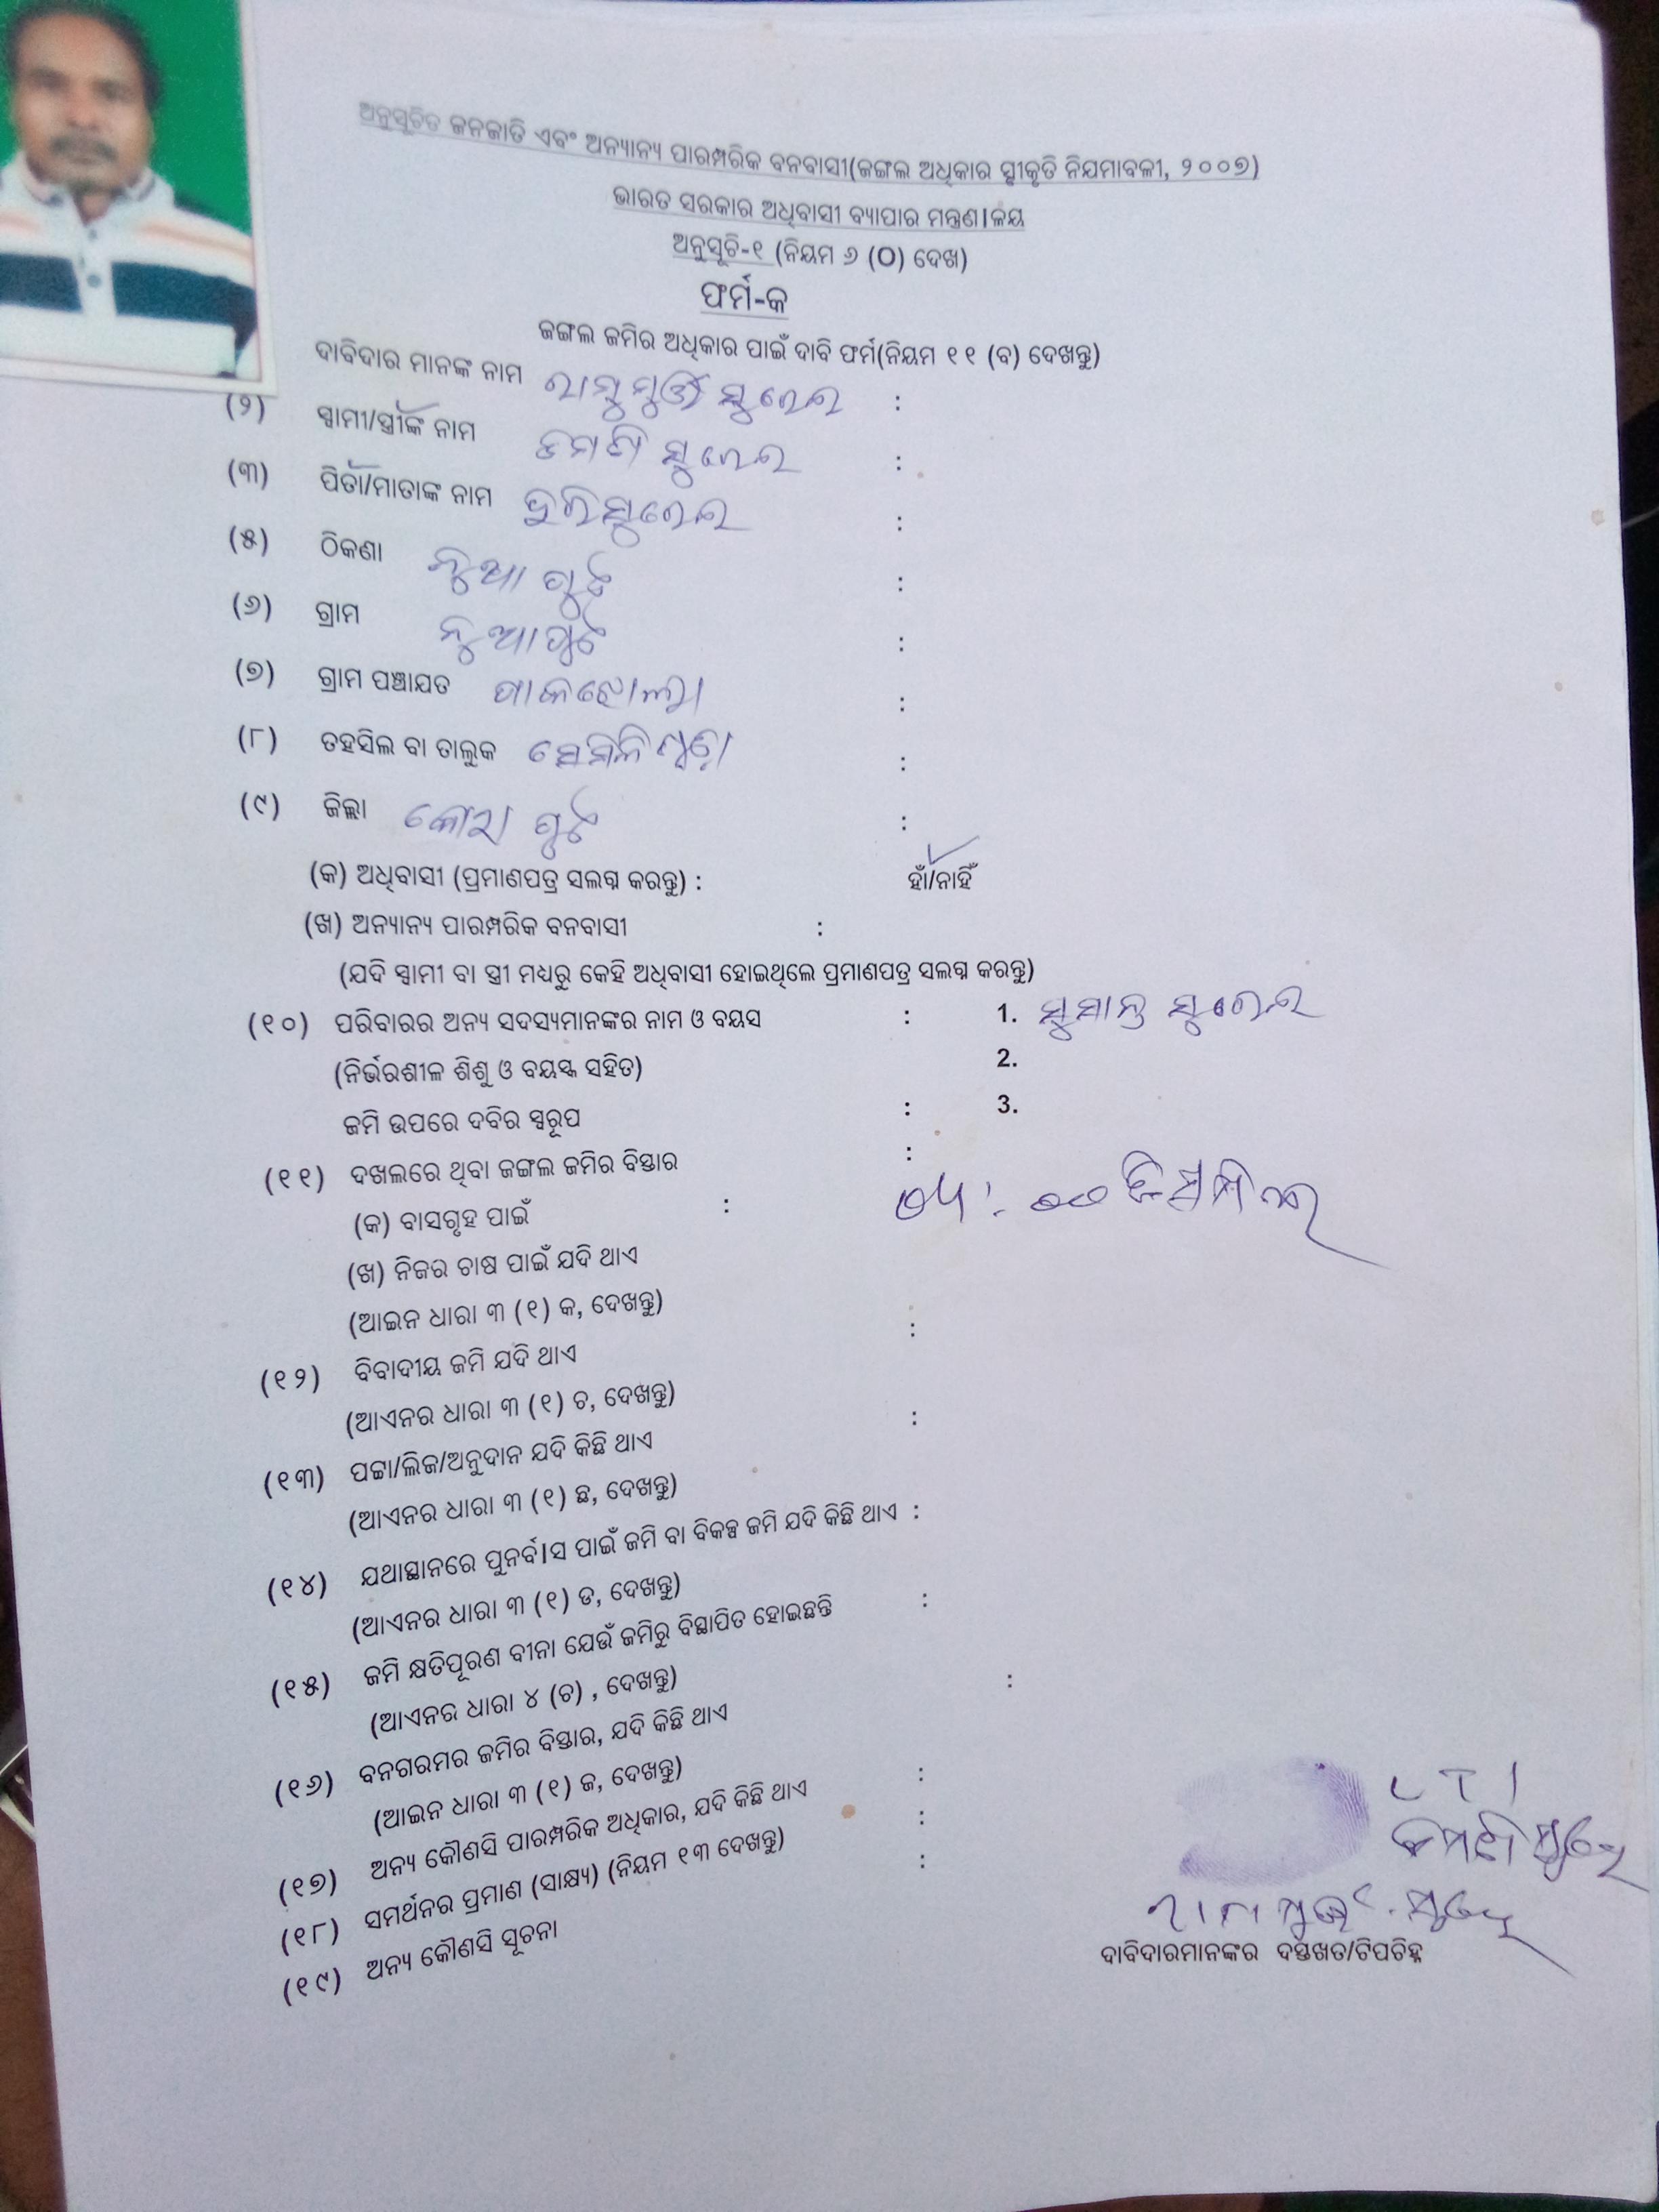 ଅନୁସୂଚିତ ଜନଜାତି ଏବଂ ଅନ୍ୟାନ୍ୟ ପାରମ୍ପରିକ ବନବାସୀ(ଜଙ୍ଗଲ ଅଧିକାର ସ୍ୱୀକୃତି ନିୟମାବଳୀ, ୨୦୦୭)
ଭାରତ ସରକାର ଅଧିବାସୀ ବ୍ୟାପାର ମନ୍ତ୍ରଣାଳୟ
ଅନୁସୂଚି-୧ (ନିୟମ ୬ (ଠ) ଦେଖ)
ଫର୍ମ-କ
ଜଙ୍ଗଲ ଜମିର ଅଧିକାର ପାଇଁ ଦାବି ଫର୍ମ(ନିୟମ ୧୧ (ବ) ଦେଖନ୍ତୁ)
ଦାବିଦାର ମାନଙ୍କ ନାମ :
(୨) ସ୍ୱାମୀ/ସ୍ତ୍ରୀଙ୍କ ନାମ :
(୩) ପିତା/ମାତାଙ୍କ ନାମ :
(୫) ଠିକଣା ନୁଆ ପୁଟ :
(୬) ଗ୍ରାମ ନୁଆପୁଟ :
(୭) ଗ୍ରାମ ପଞ୍ଚାଯତ ପାକଝୋଲା :
(୮) ତହସିଲ ବା ତାଲୁକ ସେମିଳିଗୁଡ଼ା :
(୯) ଜିଲ୍ଲା କୋରାପୁଟ :
(କ) ଅଧିବାସୀ (ପ୍ରମାଣପତ୍ର ସଲଗ୍ନ କରନ୍ତୁ) : ହାଁ/ନାହିଁ
(ଖ) ଅନ୍ୟାନ୍ୟ ପାରମ୍ପରିକ ବନବାସୀ :
(ଯଦି ସ୍ୱାମୀ ବା ସ୍ତ୍ରୀ ମଧ୍ୟରୁ କେହି ଅଧିବାସୀ ହୋଇଥିଲେ ପ୍ରମାଣପତ୍ର ସଲଗ୍ନ କରନ୍ତୁ)
(୧୦) ପରିବାରର ଅନ୍ୟ ସଦସ୍ୟମାନଙ୍କର ନାମ ଓ ବୟସ : 1. ସୁସାନ୍ତ
(ନିର୍ଭରଶୀଳ ଶିଶୁ ଓ ବୟସ୍କ ସହିତ) 2.
ଜମି ଉପରେ ଦବିର ସ୍ୱରୂପ : 3.
(୧୧) ଦଖଲରେ ଥିବା ଜଙ୍ଗଲ ଜମିର ବିସ୍ତାର :
(କ) ବାସଗୃହ ପାଇଁ : ଡିସମିଲ
(ଖ) ନିଜର ଚାଷ ପାଇଁ ଯଦି ଥାଏ
(ଆଇନ ଧାରା ୩ (୧) କ, ଦେଖନ୍ତୁ)
(୧୨) ବିବାଦୀୟ ଜମି ଯଦି ଥାଏ :
(ଆଏନର ଧାରା ୩ (୧) ଚ, ଦେଖନ୍ତୁ)
(୧୩) ପଟ୍ଟା/ଲିଜ/ଅନୁଦାନ ଯଦି କିଛି ଥାଏ :
(ଆଏନର ଧାରା ୩ (୧) ଛ, ଦେଖନ୍ତୁ)
(୧୪) ଯଥାସ୍ଥାନରେ ପୁନର୍ବାସ ପାଇଁ ଜମି ବା ବିକଳ୍ପ ଜମି ଯଦି କିଛି ଥାଏ :
(ଆଏନର ଧାରା ୩ (୧) ଡ, ଦେଖନ୍ତୁ)
(୧୫) ଜମି କ୍ଷତିପୂରଣ ବୀନା ଯେଉଁ ଜମିରୁ ବିସ୍ଥାପିତ ହୋଇଛନ୍ତି :
(ଆଏନର ଧାରା ୪ (ଚ) , ଦେଖନ୍ତୁ)
(୧୬) ବନଗରମର ଜମିର ବିସ୍ତାର, ଯଦି କିଛି ଥାଏ :
(ଆଇନ ଧାରା ୩ (୧) ଜ, ଦେଖନ୍ତୁ)
(୧୭) ଅନ୍ୟ କୌଣସି ପାରମ୍ପରିକ ଅଧିକାର, ଯଦି କିଛି ଥାଏ :
(୧୮) ସମର୍ଥନର ପ୍ରମାଣ (ସାକ୍ଷ୍ୟ) (ନିୟମ ୧୩ ଦେଖନ୍ତୁ) :
(୧୯) ଅନ୍ୟ କୌଣସି ସୂଚନା :
LTI
ଦାବିଦାରମାନଙ୍କର ଦସ୍ତଖତ/ଟିପଚିହ୍ନ